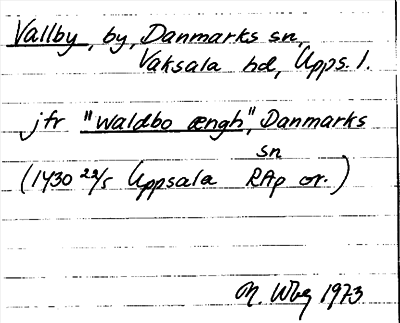 Vallby, by, Danmarks sn,
Vaksala hd, Upps. l.
jfr "waldbo ængh", Danmarks
sn
(1430 22/5 Uppsala RAp or.)
M. Wbg 1973